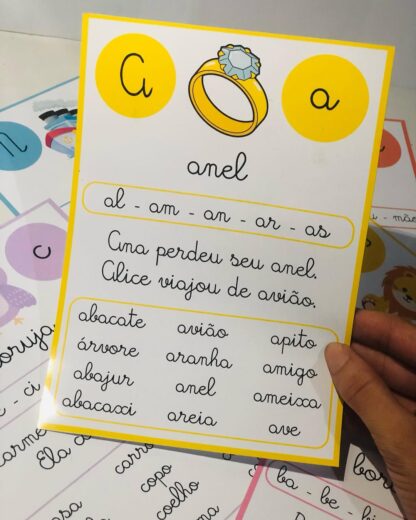 A a
anel
al - am - an - ar - as
Ana perdeu seu anel.
Alice viajou de avião.
abacate avião apito
árvore aranha amigo
abajur anel ameixa
abacaxi areia ave
n
c
coruja
- ci
carro
copo
coelho
Ela
ba - be - bi